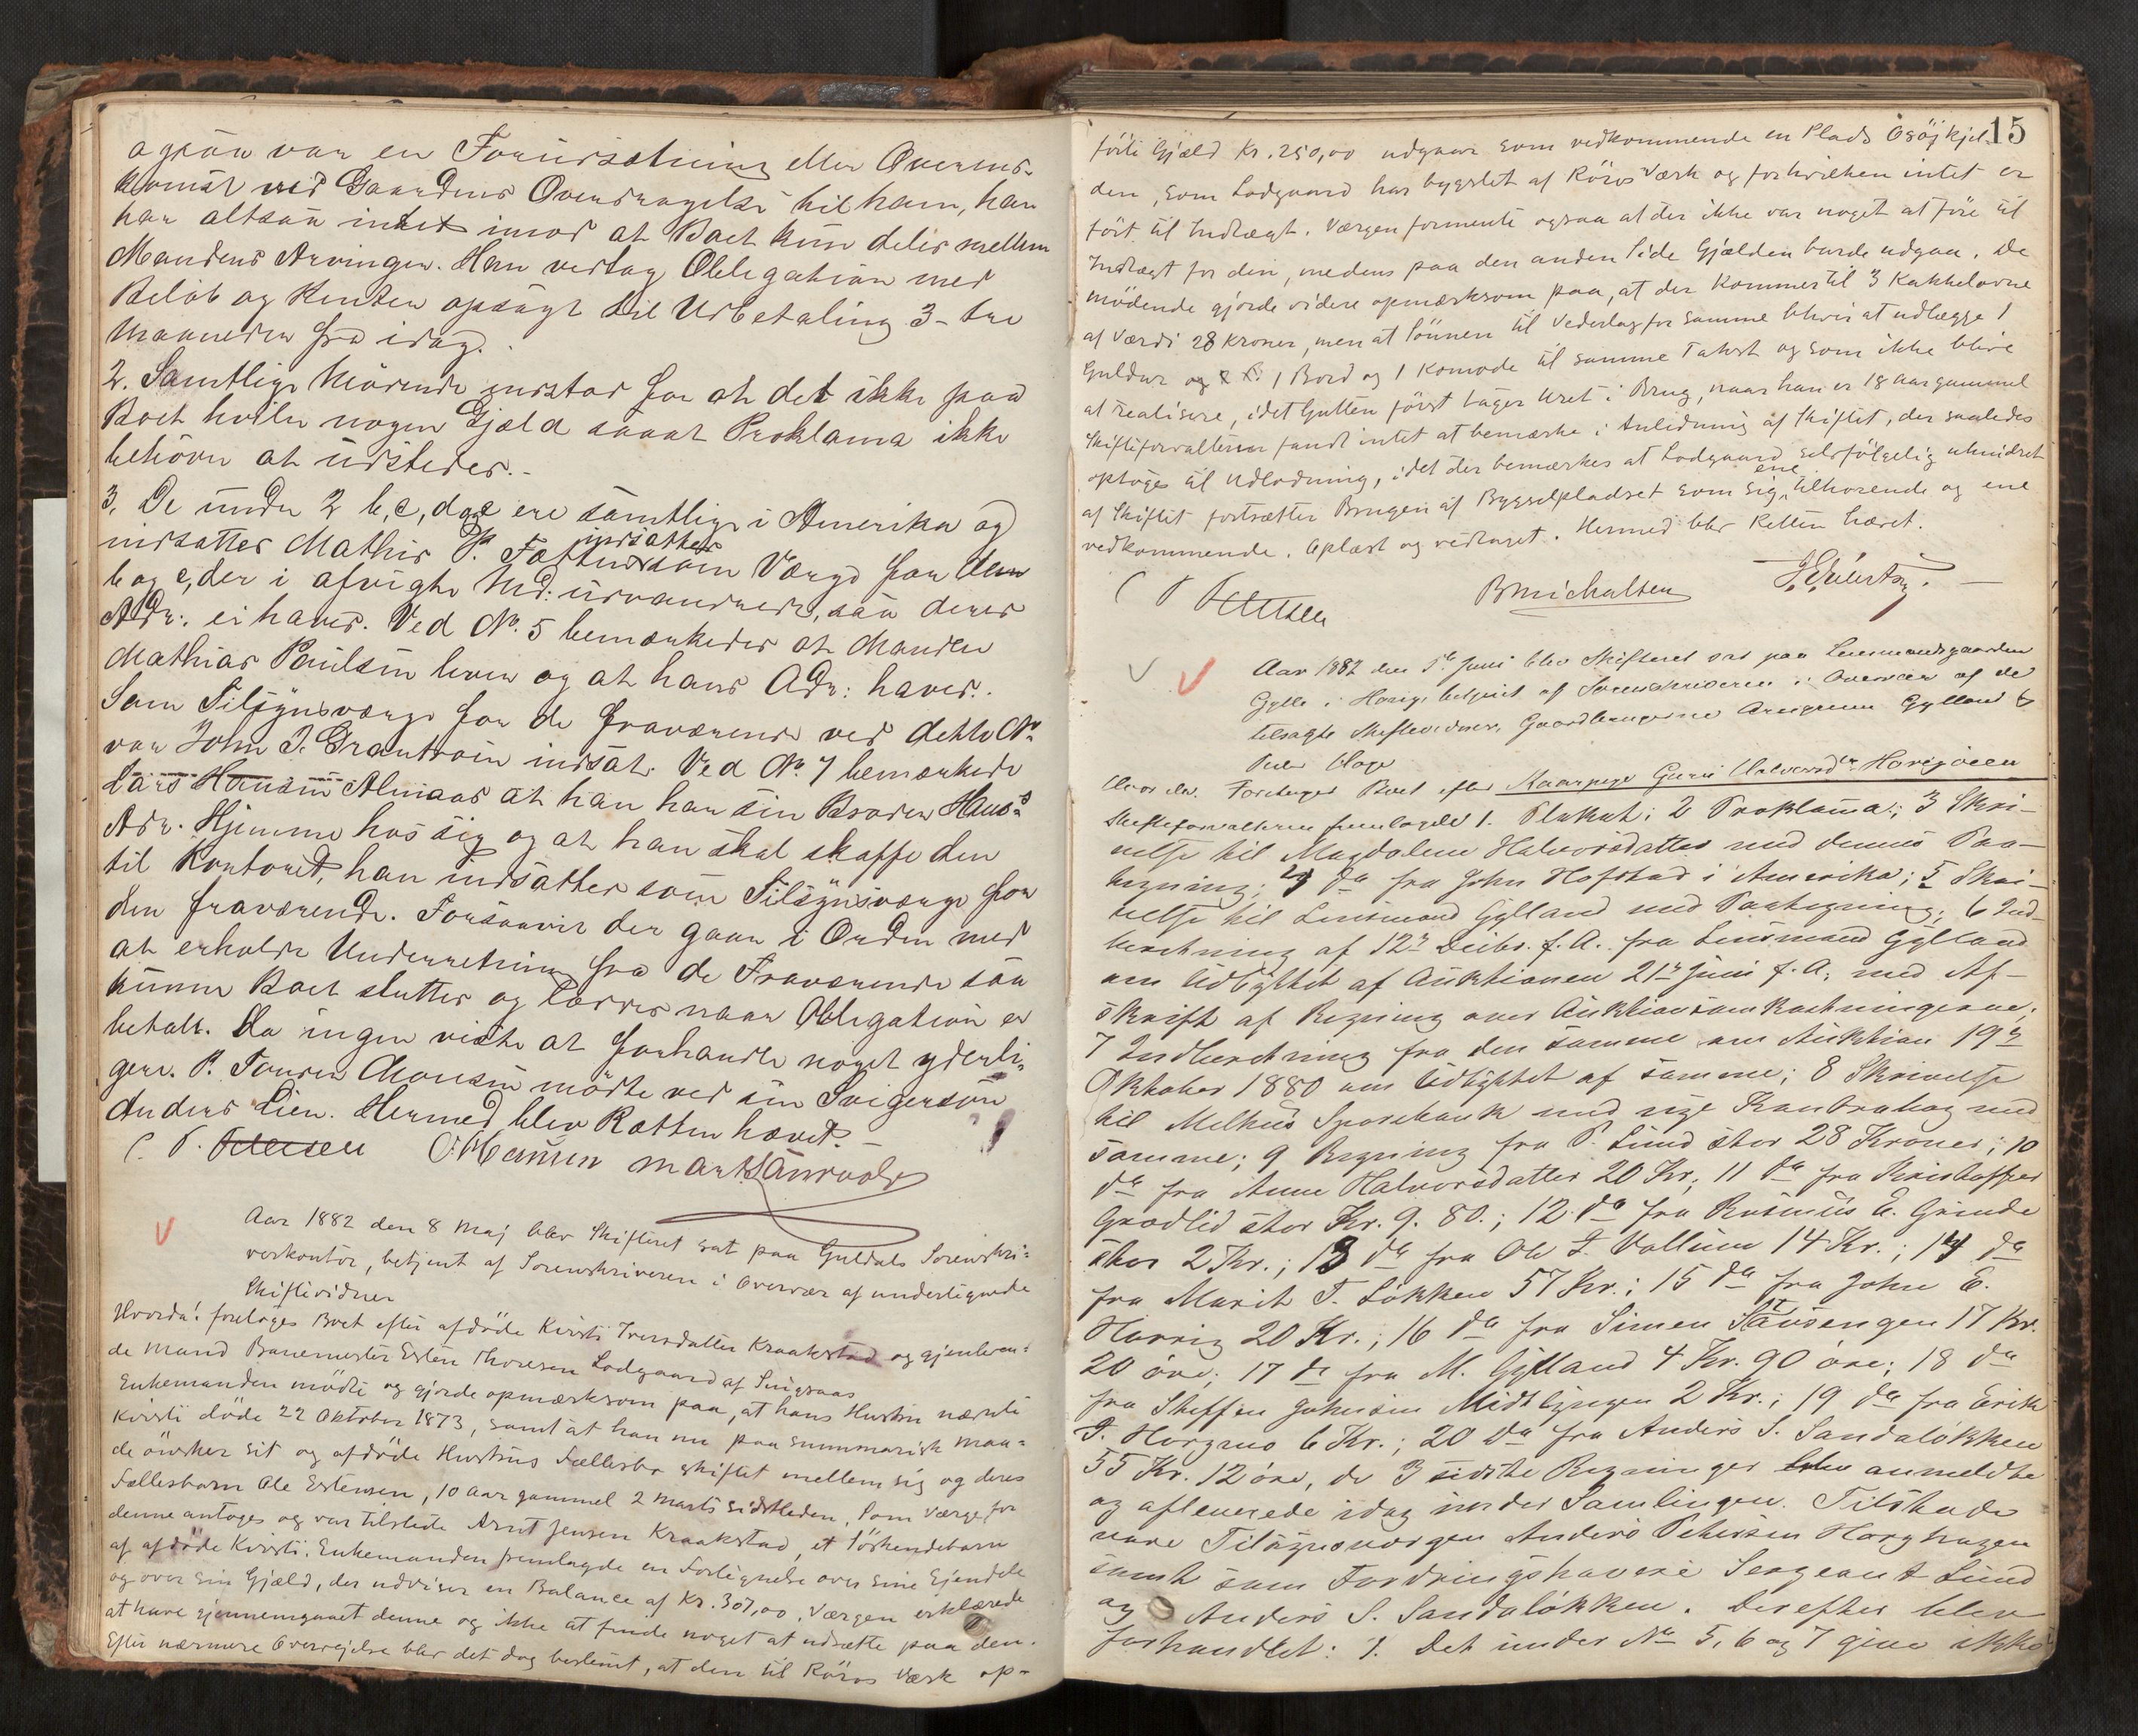 ogsaa var en Forudsætning eller Overens-
komst ved Gaardens Overdragelse til ham, han
har altsaa intet imod at Boet kun deles mellem
Mandens Arvinger. Han vedtog Obligation med
Beløb og Renter opsagt til Udbetaling 3 - tre
Maaneder fra idag.
2. Samtlige Mødende indstod for at det ikke paa
Boet hviler nogen Gjæld saaat Proklama ikke
behøver at udstedes.-
3. De under 2 b, c, d og e ere samtlige i Amerika og
indsattes Mathis P. indsattes som Værge for dem
b og c, der i afvigte Md: udvandrede, saa deres
Adr: ei haves. Ved No. 5 bemærkedes at Manden
Mathias Paulsen lever og at hans Adr: haves.
Som Tilsynsværge for de fraværende ved dette No.
var John J. Grantrøen indsat. Ved No. 7 bemærkede
Lars Hansen Almaas at han har sin Broder Hans's
Adr. Hjemme hos sig og at han skal skaffe den
til Kontoret, han indsattes som Tilsynsværge for
den fraværende. Forsaavidt der gaar i Orden med
at erholde Underretning fra de Fraværende saa
kunne Boet sluttes og loddes naar Obligation er
betalt. Da ingen vidste at forhandle noget yderli-
gere. P. Monsen mødte ved sin Svigersøn
Anders Lien. Hermed blev Retten hævet.-
C. P. Petersen O. Hansen
Aar 1882 den 8 Maj blev Skifteret sat paa Guldals Sorenskri-
verkontor, betjent af Sorenskriveren i Overvær af undertegnede
Skiftevidner
Hvorda: foretoges Boet efter afdøde Kirsti Iversdatter Kraakstad og gjenleven-
de Mand Banemester Esten Thoresen Lodgaard af Singsaas
Enkemanden mødte og gjorde opmærksom paa, at hans Hustru nævnte
Kirsti døde 22 Oktober 1873, samt at han nu paa summarisk Maa-
de ønsker sit og afdøde Hustrus Fællesbo skiftet mellem sig og deres
Fællesbarn Ole Estensen, 10 Aar gammel 2 Marts sidstleden. Som Værge for
denne antoges og var tilstede Arnt Jensen Kraakstad, et Søskendebarn
af afdøde Kirsti. Enkemanden fremlagde en Fortegnelse over sine Ejendele
og over sin Gjæld, der udviser en Balance af Kr. 307,00. Værgen erklærede
at have gjennemgaaet denne og ikke at finde noget at udsætte paa den.
Efter nærmere Overvejelse blev det dog bestemt, at den til Røros Værk op-
15
førte Gjæld Kr. 250,00 udgaar som vedkommende en Plads
den, som Lodgaard har bygslet af Røros Værk og for hvilken intet er
ført til Indtægt. Værgen formente ogsaa at der ikke var noget at føre til
Indtægt for den, medens paa den anden Side Gjælden burde udgaa. De
mødende gjorde videre opmærksom paa, at der kommer til 3 Kakkelovne
af Værdi 28 Kroner, men at Sønnen til Vederlag for samme bliver at udlægge 1
Guldur og 1 Bord og 1 Komode til samme Takst og som ikke blive
at realisere, idet Gutten først tager Uret i Brug, naar han er 18 Aar gammel
Skifteforvalteren fandt intet at bemærke i Anledning af Skiftet, der saaledes
optoges til Udlodning, idet der bemærkes at Lodgaard selvfølgelig uhindret
af Skiftet fortsætter Brugen af Bygselpladset som sig ene tilhørende og ene
vedkommende. Oplæst og vedtaget. Hermed blev Retten hævet.
C P Petersen B Michalsen
Aar 1882 den 5te Juni blev Skifteret sat paa Lensmandsgaarden
Gylle i Horg, betjent af Sorenskriveren i Overvær af de
tilsagte Skiftevidner, Gaardbrugerne Gylland &
Peder Hage
Hvorda: Foretoges Boet efter Kaarpige Guru Halvorsdr Horgøien
Skifteforvalteren fremlagde 1. Plakat; 2 Proklama; 3 Skri-
velse til Magdalene Halvorsdatter med dennes Paa-
tegning; 4 do fra John Hofstad i Amerika; 5 Skri-
velse til Lensmand Gylland med Paategning; 6 Ind-
beretning af 12te Decbr. f. A. fra Lensmand Gylland
om Udbyttet af Auktionen 21de Juni f. A. med Af-
skrift af Regning over Auktionsomkostningerne;
7 Indberetning fra den samme om Auktion 19de
Oktober 1880 om Udbyttet af samme; 8 Skrivelse
til Melhus Sparebank med sige Kontrabog med
samme; 9 Regning fra P. Lund stor 28 Kroner; 10
do fra Anne Halvorsdatter 20 Kr; 11 do fra Kristoffer
Grodlid stor Kr. 9. 80.; 12 do fra Rasmus E. Grinde
stor 2 Kr.; 13 do fra Ole T. Vollum 14 Kr.; 14 do
fra Marit T. Løkken 57 Kr.; 15 do fra John E.
Horrig 20 Kr.; 16 do fra Simen Støvsengen 17 Kr.
20 øre; 17 do fra M. Gylland 4 Kr. 90 øre; 18 do
fra Steffen Johnsen Midtlyngen 2 Kr.; 19 do fra Erik
J. Horgmo 6 Kr.; 20 do fra Anders S. Sandaløkken
55 Kr. 12 øre, de 3 sidste Regninger blev anmeldte
og afleverede idag under Samlingen. Tilstede
vare Tilsynsværgen Anders Petersen Horghagen
samt som Fordringshavere Sergeant Lund
og Anders S. Sandaløkken. Derefter blev
forhandlet: 1. Det under No 5, 6 og 7 give ikke